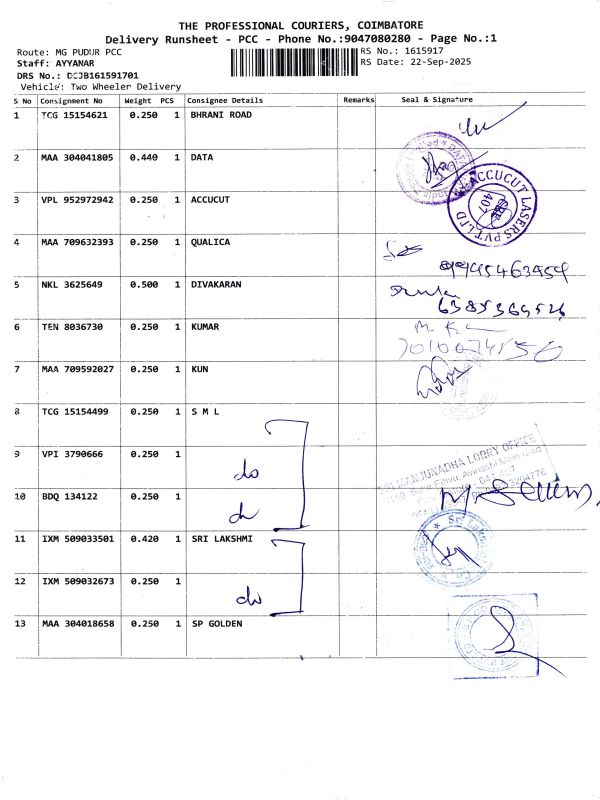 THE PROFESSIONAL COURIERS, COIMBATORE
Delivery Runsheet - PCC - Phone No.:9047080280 - Page No.:1
Route: MG PUDUR PCC
RS No.: 1615917
Staff: AYYANAR
RS Date: 22-Sep-2025
DRS No.: DCJB161591701
Vehicle: Two Wheeler Delivery
S No Consignment No Weight PCS Consignee Details Remarks Seal & Signature
1 TCG 15154621 0.250 1 BHRANI ROAD
2 MAA 304041805 0.440 1 DATA
3 VPL 952972942 0.250 1 ACCUCUT
ACCUCUT LASERS PVT.LTD
CBE
407
4 MAA 709632393 0.250 1 QUALICA
5 NKL 3625649 0.500 1 DIVAKARAN
6 TEN 8036730 0.250 1 KUMAR
7 MAA 709592027 0.250 1 KUN
8 TCG 15154499 0.250 1 S M L
9 VPI 3790666 0.250 1 do
MANJUNADHA LORRY OFFICE
10 BDQ 134122 0.250 1 do
11 IXM 509033501 0.420 1 SRI LAKSHMI
12 IXM 509032673 0.250 1 do
13 MAA 304018658 0.250 1 SP GOLDEN